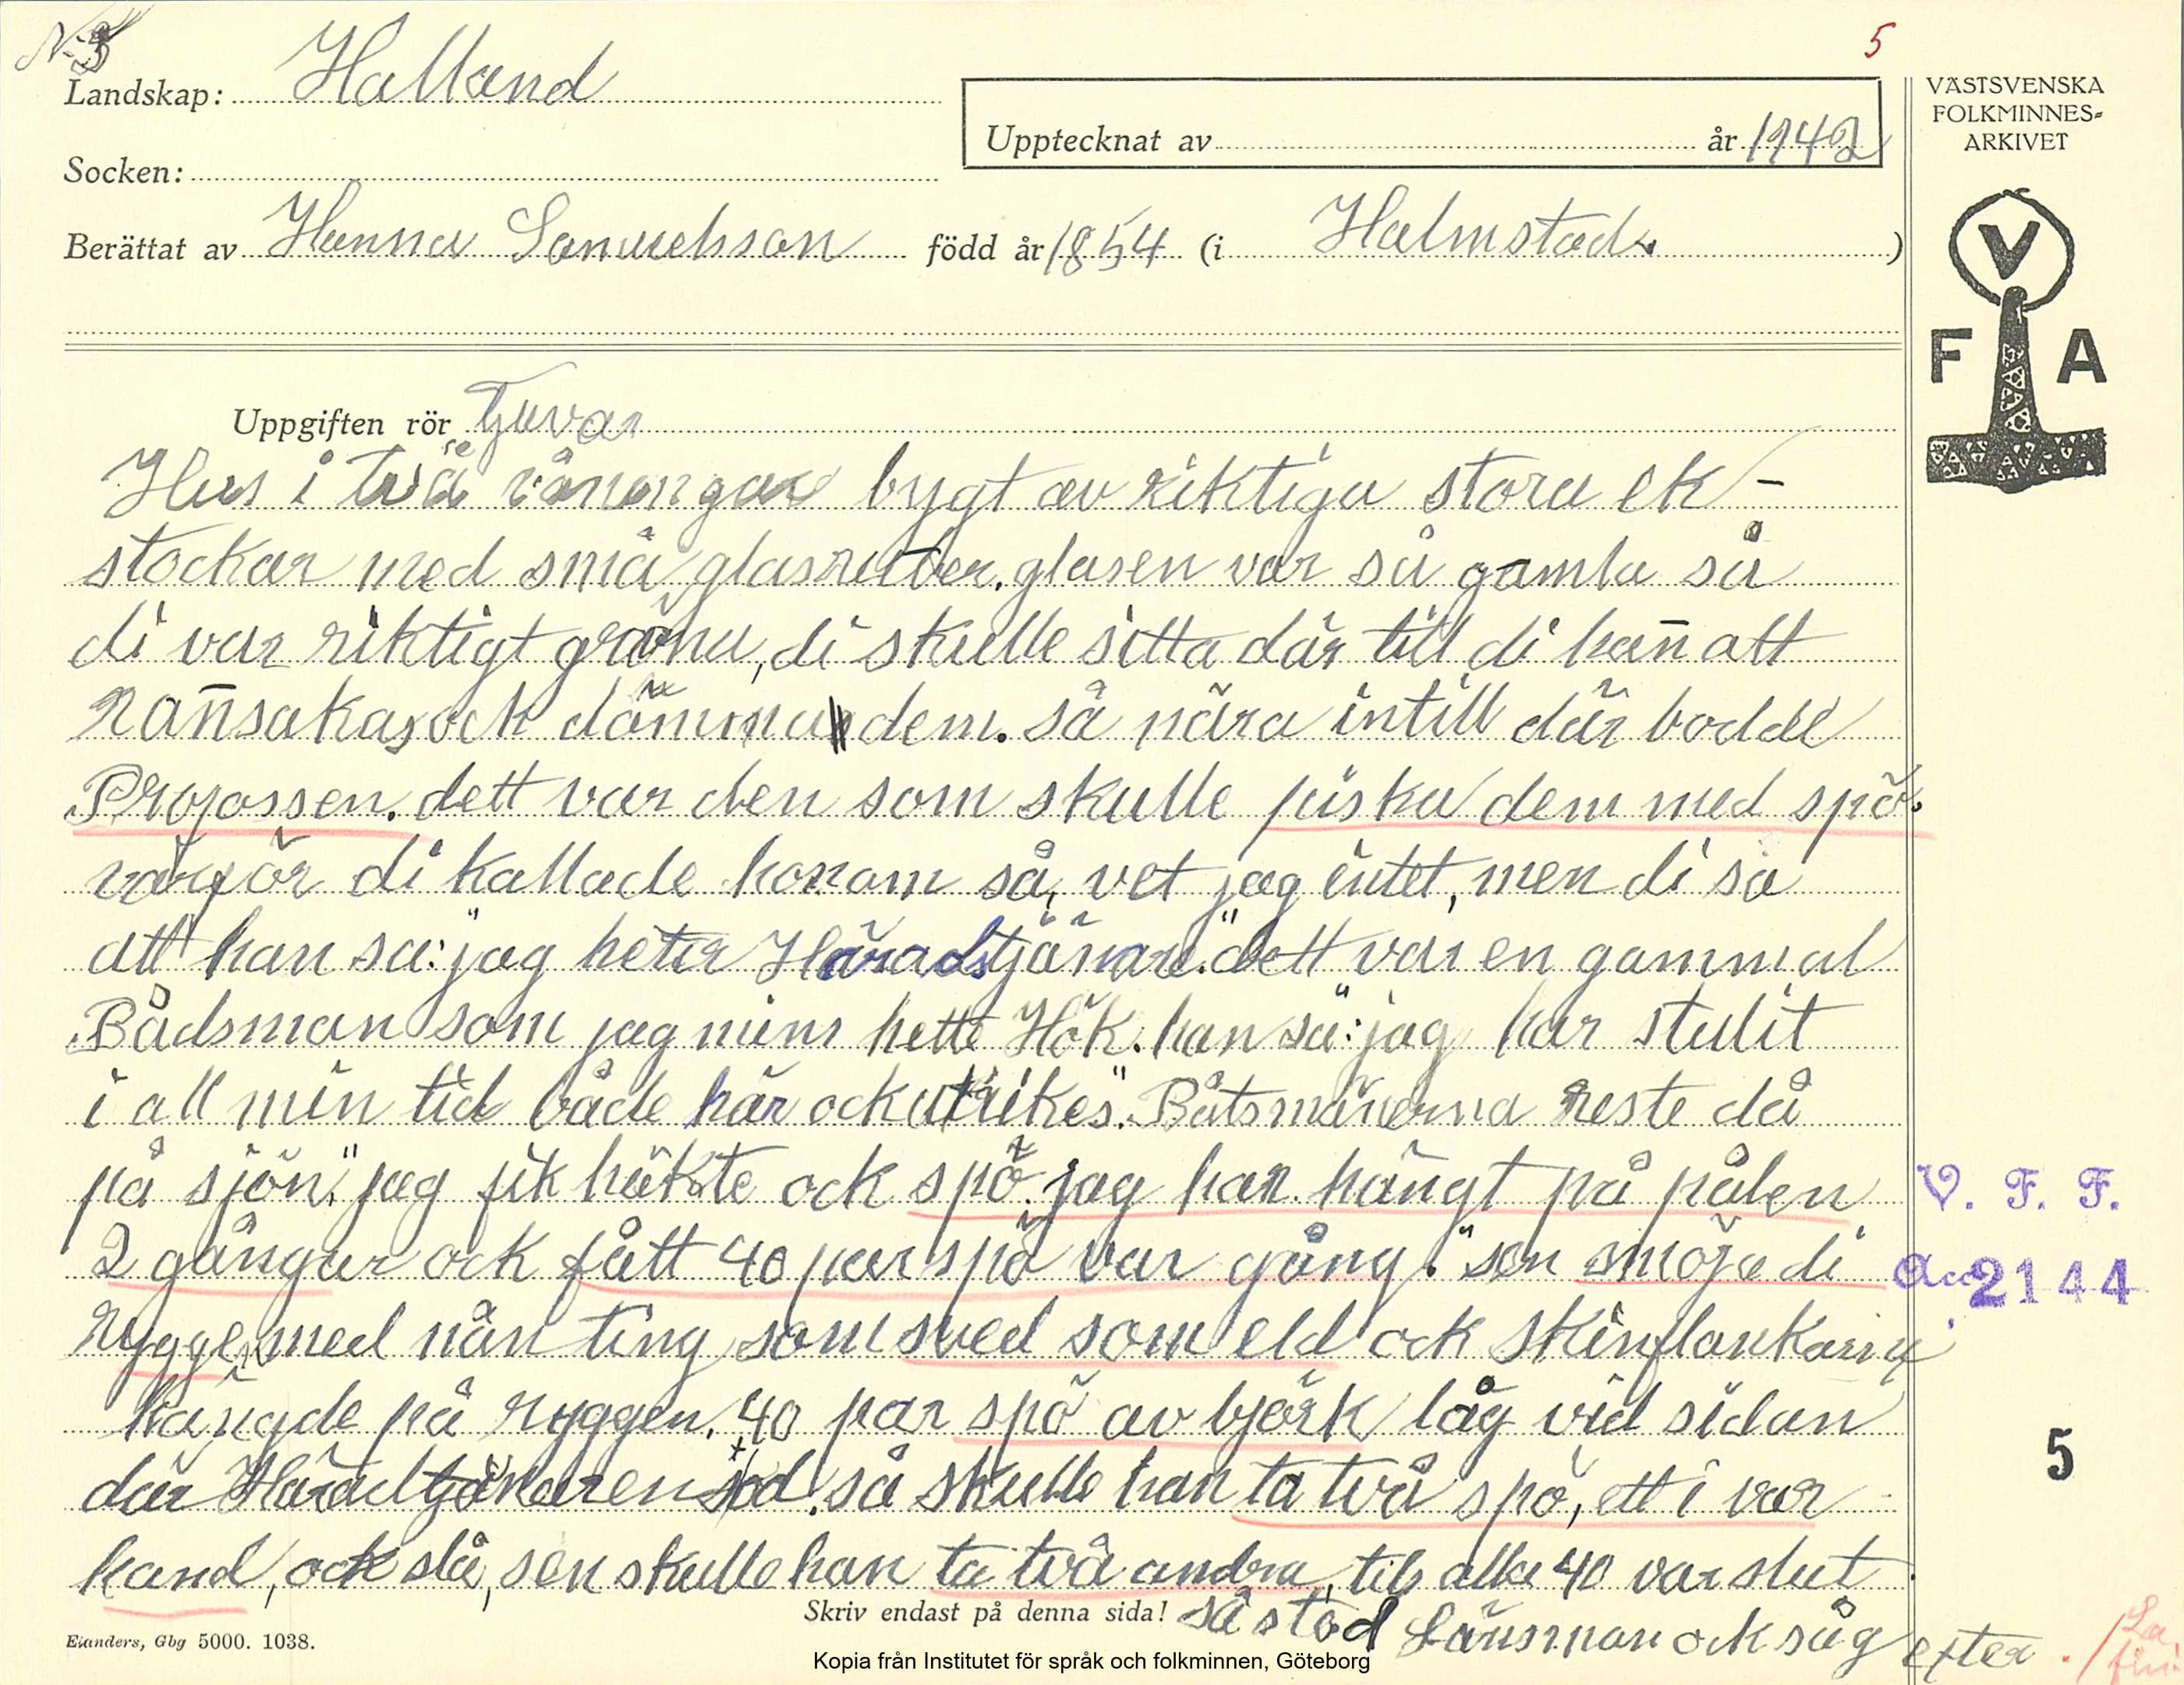 N:3
5
Landskap: Halland
Upptecknat av år 1942
VÄSTSVENSKA
FOLKMINNES-
ARKIVET
Socken:
Berättat av Hanna Samuelsson född år 1854 (i Halmstad. )
V
F A
Uppgiften rör Tjuvar
Hus i två vånongar bygt av riktiga stora ek-
stockar med små glasruter. glasen var så gamla så
di var riktigt gröna, di skulle sitta där till di han̄ att
ran̄saka, ock dömma dem. så nära intill där bodde
Profossen. dett var den som skulle piska dem med spö.
varför di kallade honom så, vet jag intet, men di sa
att han sa: "jag heter Häradstjänare." dett var en gammal
Bådsman som jag mins hette Hök. han sa: "jag har stulit
i all min tid både här ock utrikes". Båtsmänerna reste då
på sjön, "jag fik häkte ock spö. jag har hängt på pålen
2 gångar ock fått 40 par spö var gång." sen smöje di
ryggen med nån ting som sved som eld ock skinflankarna
hängde på ryggen. 40 par spö av björk låg vid sidan
där Häradtjänaren stod. så skulle han ta två spö, ett i var
hand, ock slå, sen skulle han ta två andra, tils alla 40 var slut
Skriv endast på denna sida! så stod Länsman ock såg efter.
V. F. F.
Acc 2144
5
Elanders, Gbg 5000. 1038.
Kopia från Institutet för språk och folkminnen, Göteborg